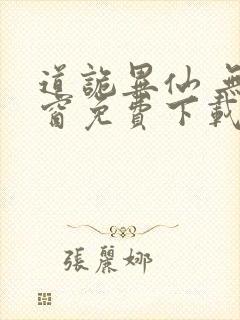 道詭異仙 無
窗免費下載
張麗娜